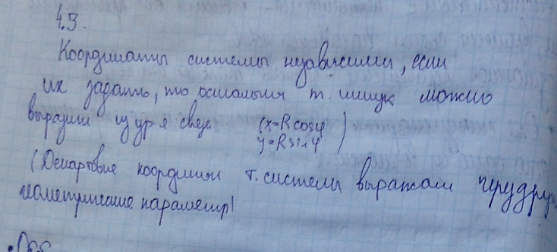 4.3.
Координаты системы независимы, если
их задать, то остальные т. мищук можно
выразить из ур-я связи (x=Rcosφ
y=Rsinφ)
(Декартовые координаты т. системы выражаем через другие
геометрические параметры)